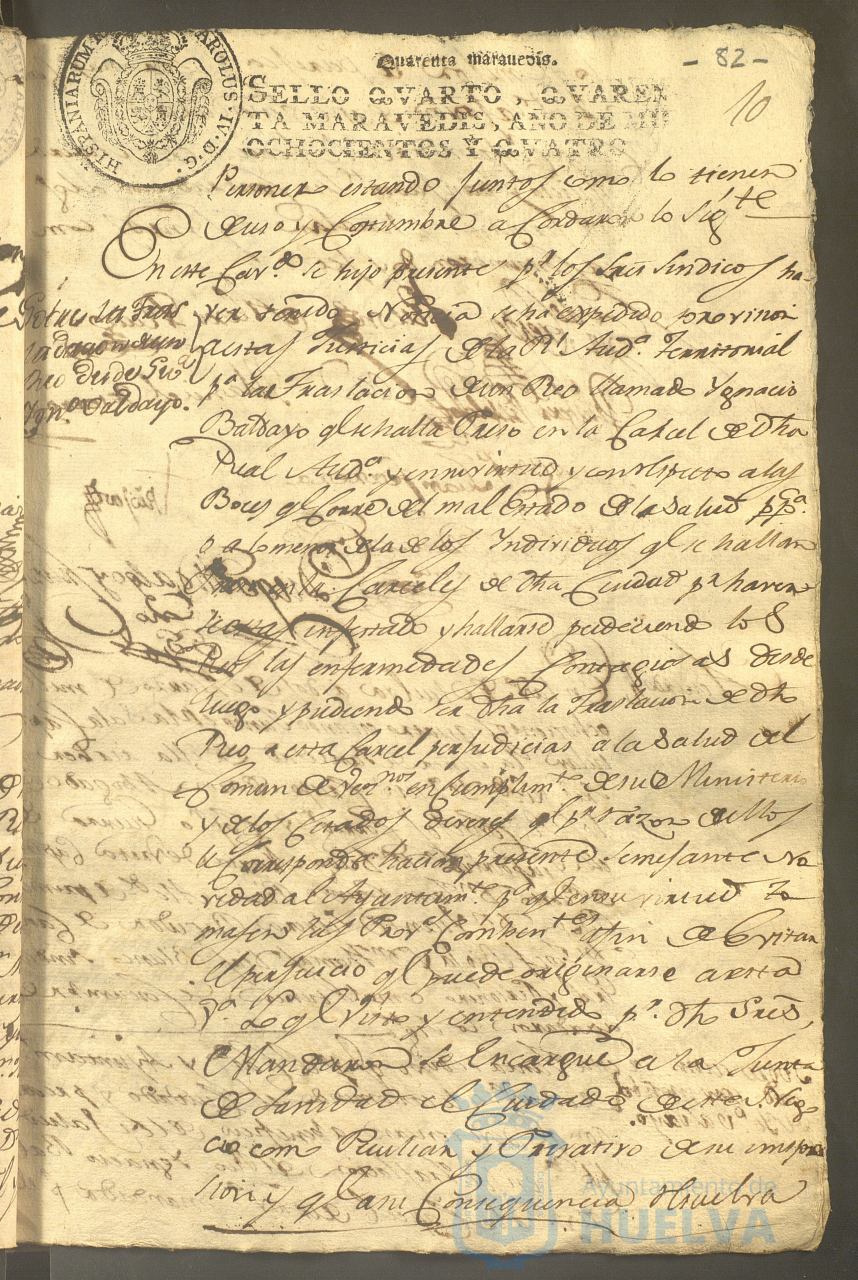 HISPANIARUM R CAROLUS·IV·D·G·
Quarenta maravedis.
- 82 -
10
SELLO QVARTO, QVAREN
TA MARAVEDIS, AÑO DE MIL
OCHOCIENTOS Y QVATRO
estando juntos como lo tienen
de uso y Costumbre acordaron lo sig.te
En este Cav.do se hizo presente p.r los Sres Sindicos ha-
ver tenido Noticia se ha expedido provision
a estas Justicias de la R.l Aud.a Territorial
p.a la Traslacion de un Reo llamado Ygnacio
Baldayo q.e se halla Preso en la Carcel de dha
Real Aud.a y en su virtud y con respecto a las
Boces q.e Corre del mal Estado de la Salud pp.ca
o a lo menos de la de los Individuos q.e se hallan
en las Carceles de dha Ciudad p.r haverse
infestado y hallarse padeciendo los
Reos las enfermedades Contagiosas desde
luego y pudiendo ser dha la Traslacion de dho
Reo a esta Carcel perjudicial a la Salud del
Comun de Vecinos en cumplim.to de su Ministerio
y de los deveres q.e p.r razon de ellos
le Corresponde hacian presente semejante No-
vedad al Ayuntam.to p.a q.e en su virtud to-
mase las Prov.s Combenien.tes a fin de Evitar
el perjuicio q.e puede originarse a esta
V.a Lo q.e Visto y entendido p.r dhos Sres,
Mandaron se Encargue a la Junta
de Sanidad el Cuidado de este Nego
cio como Peculiar y Privativo de su
y q.e a su Consequencia
Sobre la Tras
lacion de un
Reo desde Sev.a
Ygn.o Valdayo.
Ayuntamiento de
HUELVA